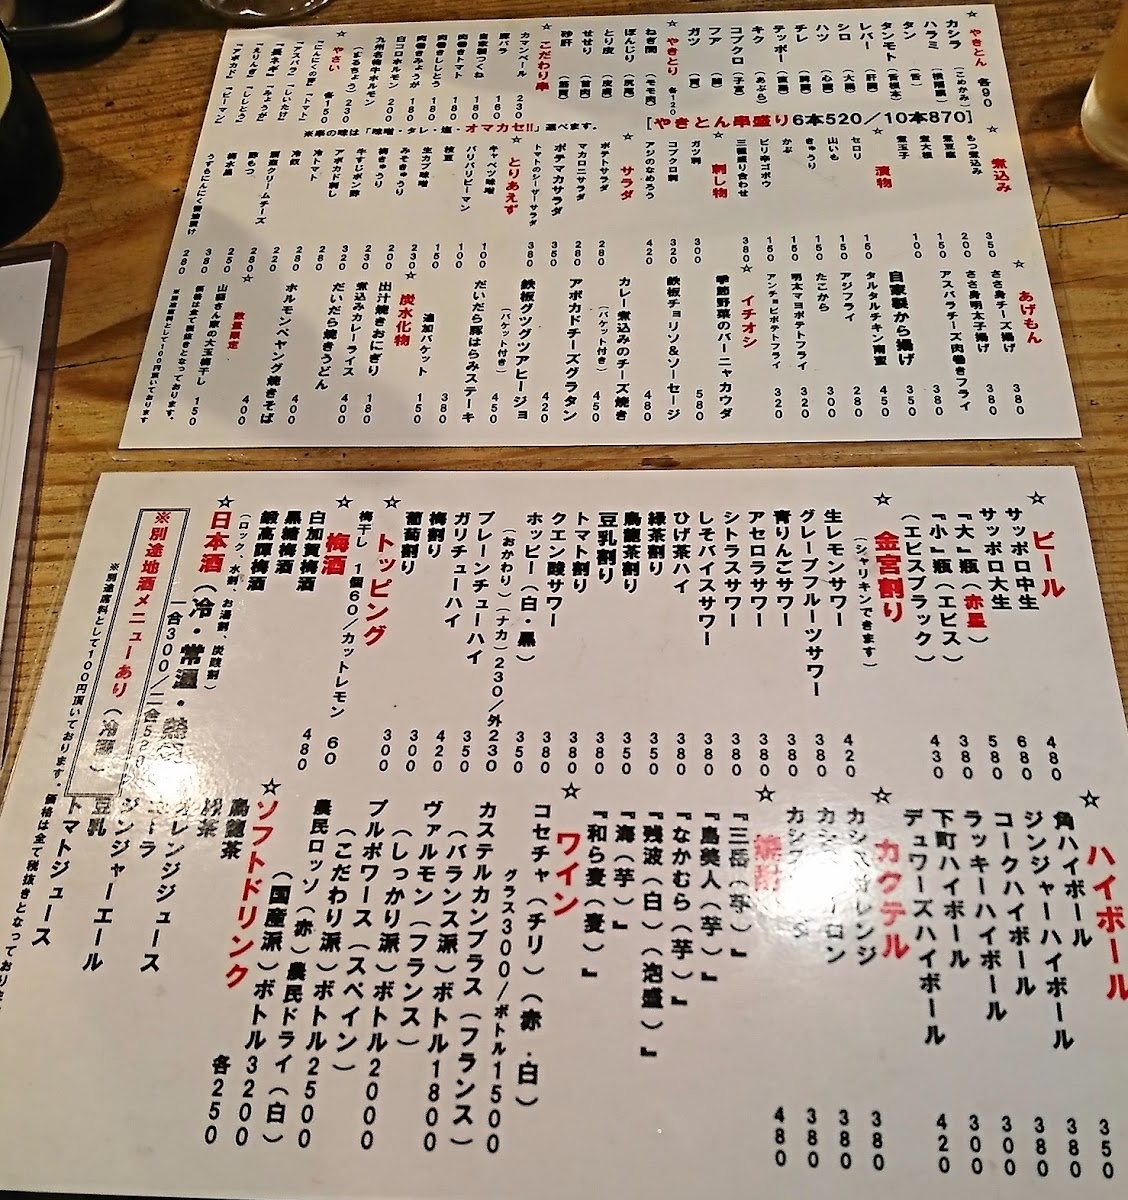 ☆やきとん 各90
カシラ (こめかみ)
ハラミ (横隔膜)
タン (舌)
タンモト (舌根本)
レバー (肝臓)
シロ (大腸)
ハツ (心臓)
チレ (脾臓)
テッポー (直腸)
キク (あぶら)
コブクロ (子宮)
フア (肺)
ガツ (胃)
☆やきとり 各120
ねぎ間 (モモ肉)
ぼんじり (尾肉)
とり皮 (皮膚)
せせり (首肉)
砂肝 (筋胃)
☆こだわり串
カマンベール 230
豚バラ 180
自家製つくね 180
肉巻きトマト 180
肉巻きししとう 180
肉巻みょうが 180
白コロホルモン 200
九州名物牛ホルモン
(まるちょう) 230
☆やさい 各150
『にんにくの芽』『トマト』
『アスパラ』『しいたけ』
『長ネギ』『みょうが』
『えりんぎ』『ししとう』
『アボカド』『ピーマン』
[やきとん串盛り6本520/10本870]
※串の味は「味噌・タレ・塩・オマカセ!!」選べます。
☆煮込み
もつ煮込み 350
煮豆腐 200
煮大根 150
煮玉子 100
☆漬物
セロリ 150
山いも 150
きゅうり 150
かぶ 150
ピリ辛ゴボウ 150
三種盛り合わせ 380
☆刺し物
ガツ刺 300
コブクロ刺 320
アジのなめろう 420
☆サラダ
ポテトサラダ 280
マカロニサラダ 280
ポテマカサラダ 350
トマトのシーザーサラダ 380
☆とりあえず
キャベツ味噌 100
バリバリピーマン 100
枝豆 150
生カブ味噌 230
みそきゅうり 200
梅きゅうり 230
牛すじポン酢 320
アボカド刺し 280
冷トマト 280
冷奴 220
酒盗クリームチーズ 280
豚みつ 250
梅水晶 380
うずらにんにく醤油漬け 280
☆あげもん
ささ身チーズ揚げ 380
ささ身明太子揚げ 380
アスパラチーズ肉巻きフライ 380
自家製から揚げ 350
タルタルチキン南蛮 450
アジフライ 280
たこから 300
明太マヨポテトフライ 320
アンチョビポテトフライ 320
☆イチオシ
季節野菜のバーニャカウダ 580
鉄板チョリソ&ソーセージ 480
カレー煮込みのチーズ焼き
(バケット付き) 450
アボカドチーズグラタン 420
鉄板グツグツアヒージョ
(バケット付き) 450
だいだら豚はらみステーキ 380
追加バケット 150
☆炭水化物
出汁焼きおにぎり 180
煮込みカレーライス 400
だいだら焼きうどん 400
ホルモンペヤング焼きそば 400
☆数量限定
山脇さん家の大玉梅干し 150
価格は全て税抜きとなっております。
※別途席料として100円頂いております
☆ビール
サッポロ中生 480
サッポロ大生 680
『大』瓶(赤星) 580
『小』瓶(エビス) 380
(エビスブラック) 430
☆金宮割り
(シャリキンできます)
生レモンサワー 420
グレープフルーツサワー 380
青りんごサワー 380
アセロラサワー 380
シトラスサワー 380
しそバイスサワー 350
ひげ茶ハイ 350
緑茶割り 350
烏龍茶割り 350
豆乳割り 380
トマト割り 380
クエン酸サワー 380
ホッピー(白・黒) 350
(おかわり)(ナカ)230/外230
プレーンチューハイ 350
ガリチューハイ 420
梅割り 300
葡萄割り 300
☆トッピング
梅干し 1個60/カットレモン 60
☆梅酒
白加賀梅酒 480
黒糖梅酒
鍛高譚梅酒
(ロック、水割、お湯割、炭酸割)
☆日本酒(冷・常温・
一合300/二合5
※別途地酒メニューあり(冷酒)
※別途席料として100円頂いております。価格は全て税抜きとなっており
☆ハイボール
角ハイボール 350
ジンジャーハイボール 380
コークハイボール 380
ラッキーハイボール 300
下町ハイボール 300
デュワーズハイボール 420
☆カクテル
カシスオレンジ 380
380
380
☆焼酎 480
『三岳(芋)』
『島美人(芋)』
『なかむら(芋)』
『残波(白)(泡盛)』
『海(芋)』
『和ら麦(麦)』
☆ワイン
コセチャ(チリ)(赤・白)
グラス300/ボトル1500
カステルカンブラス(フランス)
(バランス派)ボトル1800
ヴァルモン(フランス)
(しっかり派)ボトル2000
プルポワース(スペイン)
(こだわり派)ボトル2500
農民ロッソ(赤)農民ドライ(白)
(国産派)ボトル3200
☆ソフトドリンク 各250
烏龍茶
緑茶
オレンジジュース
コーラ
ジンジャーエール
豆乳
トマトジュース